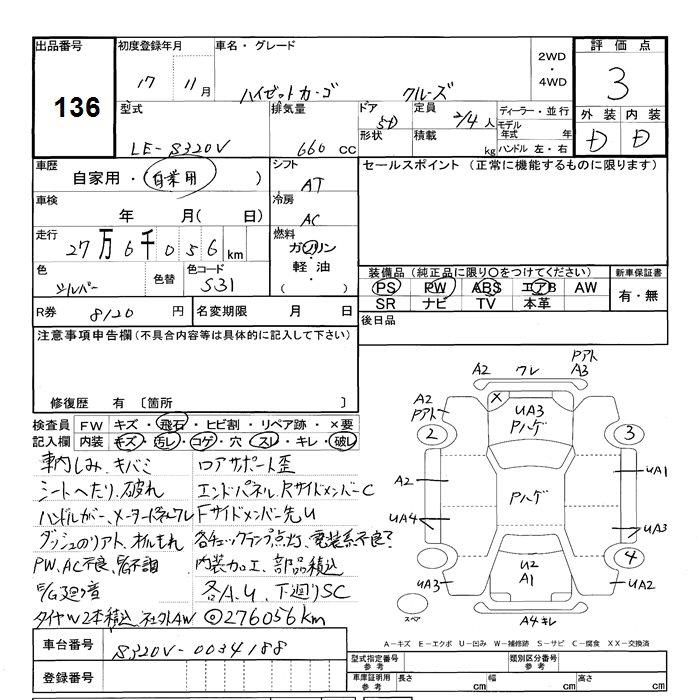 出品番号 初度登録年月 車名・グレード 評価点
136 17年 11月 ハイゼットカーゴ クルーズ 2WD・4WD 3
型式 排気量 ドア 定員 ディーラー・並行 外装 内装
LE-S320V 660cc 5D 2/4人 モデル年式 年 D D
形状 積載 kg ハンドル 左・右
車歴 シフト セールスポイント (正常に機能するものに限ります)
自家用・(自業用) AT
車検 冷房
年 月( 日) AC
走行 燃料
27万6千056km ガソリン
軽油
( )
色 色替 色コード
シルバー S31
装備品(純正品に限り○をつけてください) 新車保証書
PS PW ABS エアB AW 有・無
SR ナビ TV 本革
R券 8120円 名変期限 月 日 後日品
注意事項申告欄(不具合内容等は具体的に記入して下さい)
修復歴 有 〔箇所 〕
検査員 FW キズ・飛石・ヒビ割・リペア跡・×要
記入欄 内装 キズ・汚レ・コゲ・穴・スレ・キレ・破レ
車内しみ、キバミ ロアサポート歪
シートヘたり、破れ エンドパネル、Rサイドメンバー C
Fサイドメンバー先U
各チェックランプ点灯、電装系不良?
PW、AC不良、E/G不調 内装加工、部品積込
各A.U、下廻りSC
タイヤW2本積込、社外AW ◎276056km
車台番号 S320V-0034188
登録番号
A2 ワレ Pアト A3
A2 Pアト
× UA3 Pハゲ
2 3
A2 Pハゲ UA1
UA4 UA3
4
UA3 U2 A1 UA2
スペア A4キレ
A-キズ E-エクボ U-凹み W-補修跡 S-サビ C-腐食 XX-交換済
型式指定番号 参考 類別区分番号 参考
車庫証明用 参考 長さ cm 幅 cm 高さ cm